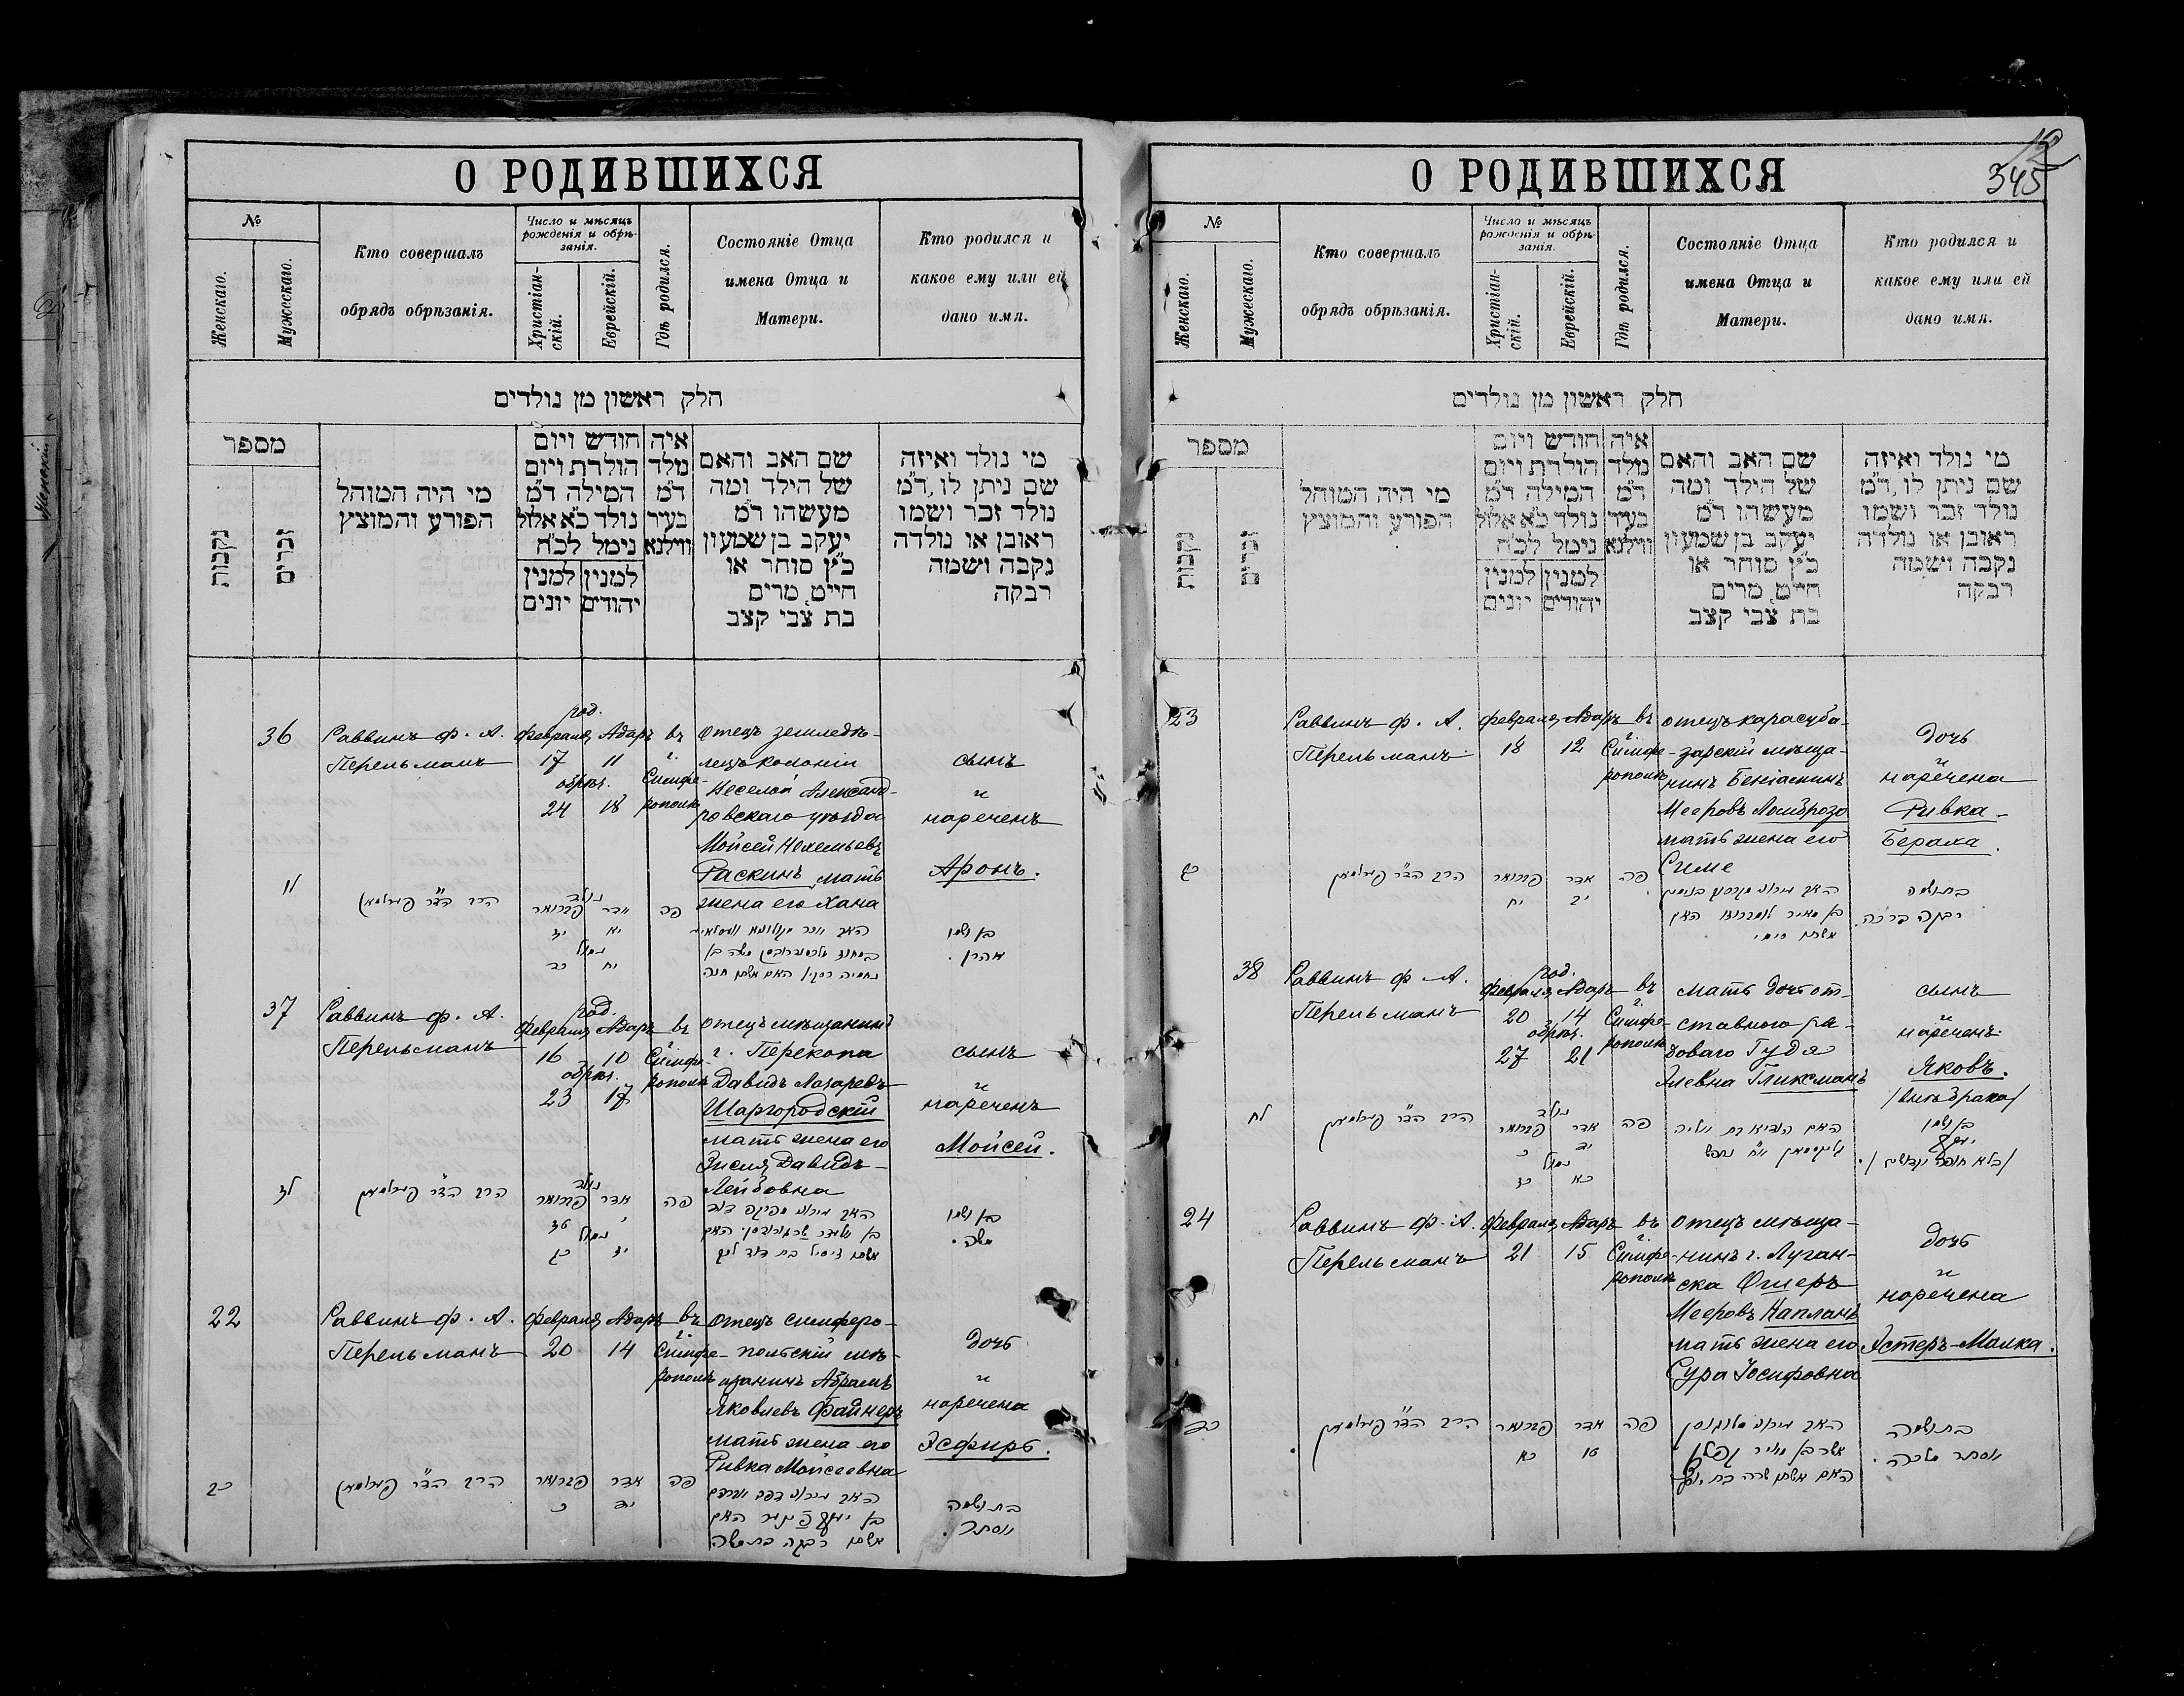 О РОДИВШИХСЯ
№
Женскаго.
Мужескаго.
Кто совершалъ
обрядъ обрѣзанія.
Число и мѣсяцъ
рожденія и обрѣ-
занія.
Христіан-
скій.
Еврейскій.
Гдѣ родился.
Состояніе Отца
имена Отца и
Матери.
Кто родился и
какое ему или ей
дано имя.
חלק ראשון מן נולדים
מספר
נקבות
זכרים
מי היה המוהל
הפורע והמוציץ
חודש ויום
הולדת ויום
המילה ד״מ
נולד כ״א אלול
נימל לכ״ח
למנין למנין
יהודים יונים
איה
נולד
ד״מ
בעיר
ווילנא
שם האב והאם
של הילד ומה
מעשהו ד״מ
יעקב בן שמעון
כ״ץ סוחר או
חייט, מרים
בת צבי קצב
מי נולד ואיזה
שם ניתן לו, ד״מ
נולד זכר ושמו
ראובן או נולדה
נקבה ושמה
רבקה
36
Раввинъ Ф. А.
Перельманъ
род.
Февраля Адаръ
17 11
обрѣз.
24 18
въ
г.
Симфе-
рополѣ
Отецъ земледѣ-
лецъ колоніи
Веселой Александ-
ровскаго уѣзда
Мойсей Нехемьевъ
Раскинъ мать
жена его Хана
сынъ
и
нареченъ
Аронъ.
הרב הד״ר פערלמאן
נולד
אדר פברואר
יא יז
נימול
יח כד
פה
בן ושמו
אהרן.
37
Раввинъ Ф. А.
Перельманъ
род.
Февраля Адаръ
16 10
обрѣз.
23 17
въ
г.
Симфе-
рополѣ
отецъ мѣщанинъ
г. Перекопа
Давидъ Лазаревъ
Шаргородскій
мать жена его
Зисля Давидъ-
Лейбовна
сынъ
и
нареченъ
Мойсей.
לז
הרב הד״ר פערלמאן
נולד
אדר פברואר
י טז
נימול
יז כג
פה
בן ושמו
משה.
22
Раввинъ Ф. А.
Перельманъ
Февраля Адаръ
20 14
въ
г.
Симфе-
рополѣ
Отецъ симферо-
польскій мѣ-
щанинъ Абрамъ
Яковлевъ Файнеръ
мать жена его
Ривка Мойсеевна
дочь
и
наречена
Эсфирь.
כב
הרב הד״ר פערלמאן
אדר פברואר
יד כ
פה
אשתו רבקה בת משה
בת ושמה
אסתר.
345
О РОДИВШИХСЯ
№
Женскаго.
Мужескаго.
Кто совершалъ
обрядъ обрѣзанія.
Число и мѣсяцъ
рожденія и обрѣ-
занія.
Христіан-
скій.
Еврейскій.
Гдѣ родился.
Состояніе Отца
имена Отца и
Матери.
Кто родился и
какое ему или ей
дано имя.
חלק ראשון מן נולדים
מספר
נקבות
זכרים
מי היה המוהל
הפורע והמוציץ
חודש ויום
הולדת ויום
המילה ד״מ
נולד כ״א אלול
נימל לכ״ח
למנין למנין
יהודים יונים
איה
נולד
ד״מ
בעיר
ווילנא
שם האב והאם
של הילד ומה
מעשהו ד״מ
יעקב בן שמעון
כ״ץ סוחר או
חייט, מרים
בת צבי קצב
מי נולד ואיזה
שם ניתן לו, ד״מ
נולד זכר ושמו
ראובן או נולדה
נקבה ושמה
רבקה
23
Раввинъ Ф. А.
Перельманъ
Февраля Адаръ
18 12
въ
г.
Симфе-
рополѣ
отецъ карасуба-
зарскій мѣща-
нинъ Беніаминъ
Мееровъ Ломброзо
мать жена его
Симе
дочь
и
наречена
Ривка-
Бераха.
הרב הד״ר פערלמאן
אדר פברואר
יב יח
פה
בת ושמה
רבקה ברכה.
38
Раввинъ Ф. А.
Перельманъ
род.
Февраля Адаръ
20 14
обрѣз.
27 21
въ
г.
Симфе-
рополѣ
мать дочь от-
ставного ря-
доваго Гудя
Элевна Гликсманъ
сынъ
и
нареченъ
Яковъ.
/внѣ брака/
לח
הרב הד״ר פערלמאן
נולד
אדר פברואר
יד כ
נימול
כא כז
פה
בן ושמו
יעקב
/בלא חופה וקדושין/.
24
Раввинъ Ф. А.
Перельманъ
Февраля Адаръ
21 15
въ
г.
Симфе-
рополѣ
Отецъ мѣща-
нинъ г. Луган-
ска Ошеръ
Мееровъ Капланъ
мать жена его
Сура Іосифовна
дочь
и
наречена
Эстеръ-Малка.
כד
הרב הד״ר פערלמאן
אדר פברואר
טו כא
פה
אשר בן מאיר קפלן
בת ושמה
אסתר מלכה.